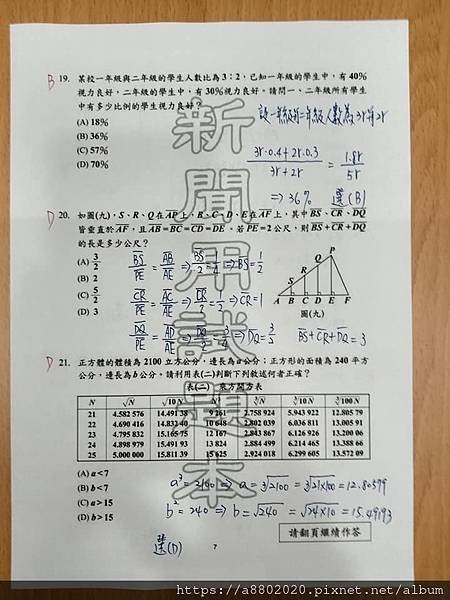 B 19. 某校一年級與二年級的學生人數比為3:2,已知一年級的學生中,有40%
視力良好,二年級的學生中,有30%視力良好。請問一、二年級所有學生
中有多少比例的學生視力良好?
(A) 18%
(B) 36%
(C) 57%
(D) 70%
設一年級和二年級人數為3r和2r
3r·0.4+2r·0.3 / 3r+2r = 1.8r / 5r
⇒ 36% 選(B)
D 20. 如圖(九),S、R、Q在AP上,B、C、D、E在AF上,其中BS、CR、DQ
皆垂直於AF,且AB=BC=CD=DE。若PE=2公尺,則BS+CR+DQ
的長是多少公尺?
(A) 3/2
(B) 2
(C) 5/2
(D) 3
BS/PE = AB/AE ⇒ BS/2 = 1/4 ⇒ BS = 1/2
CR/PE = AC/AE ⇒ CR/2 = 1/2 ⇒ CR = 1
DQ/PE = AD/AE ⇒ DQ/2 = 3/4 ⇒ DQ = 3/2
P
Q
R
S
A B C D E F
圖(九)
BS+CR+DQ = 3
D 21. 正方體的體積為2100立方公分,邊長為a公分;正方形的面積為240平方
公分,邊長為b公分。請利用表(二)判斷下列敘述何者正確?
表(二) 乘方開方表
N √N √10N N³ ∛N ∛10N ∛100N
21 4.582 576 14.491 38 9 261 2.758 924 5.943 922 12.805 79
22 4.690 416 14.832 40 10 648 2.802 039 6.036 811 13.005 91
23 4.795 832 15.165 75 12 167 2.843 867 6.126 926 13.200 06
24 4.898 979 15.491 93 13 824 2.884 499 6.214 465 13.388 66
25 5.000 000 15.811 39 15 625 2.924 018 6.299 605 13.572 09
(A) a<7
(B) b<7
(C) a>15
(D) b>15
a³=2100 ⇒ a=∛2100 = ∛21×100 = 12.80579
b²=240 ⇒ b=√240 = √24×10 = 15.49193
選(D)
請翻頁繼續作答
7
新聞用試題本
https://a8802020.pixnet.net/album